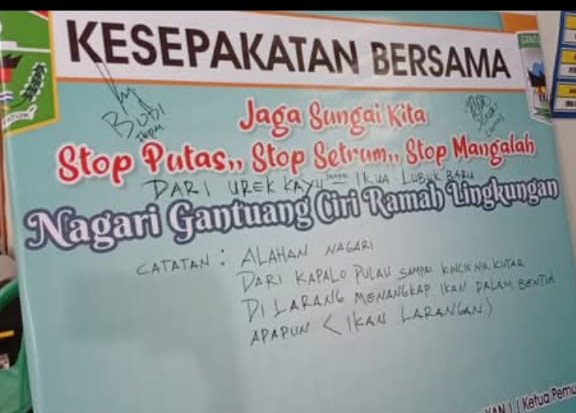 KESEPAKATAN BERSAMA
BUDI
Jaga Sungai Kita
Stop Putas,, Stop Setrum,, Stop Mangalah
DARI UREK KAYU IKUA LUBUK BARU
Nagari Gantuang Ciri Ramah Lingkungan
CATATAN : ALAHAN NAGARI
DARI KAPALO PULAU SAMPAI KINCIE NIA KUTAR
DI LARANG MENANGKAP IKAN DALAM BENTUK
APAPUN (IKAN LARANGAN)
Ketua Pemu